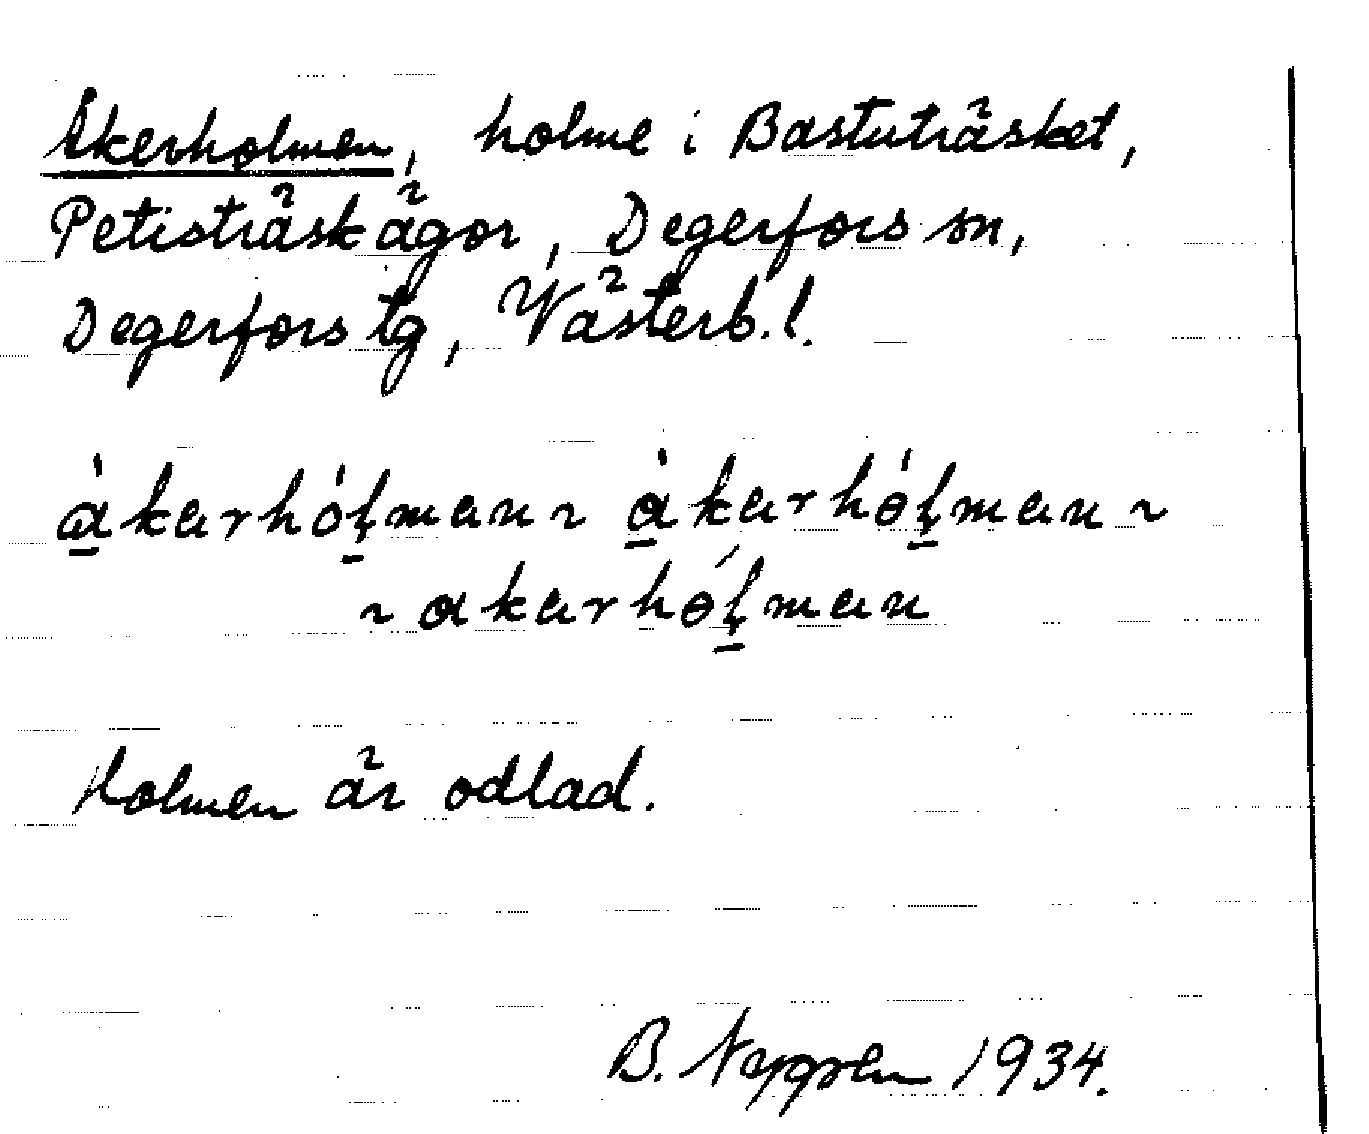 Åkerholmen, holme i Bastuträsket,
Petisträskägor, Degerfors sn,
Degerfors tg, Västerb. l.
àkarhóļman ~ àkarhóļman ~
~ akarhóļman
Holmen är odlad.
B. Nygren 1934.